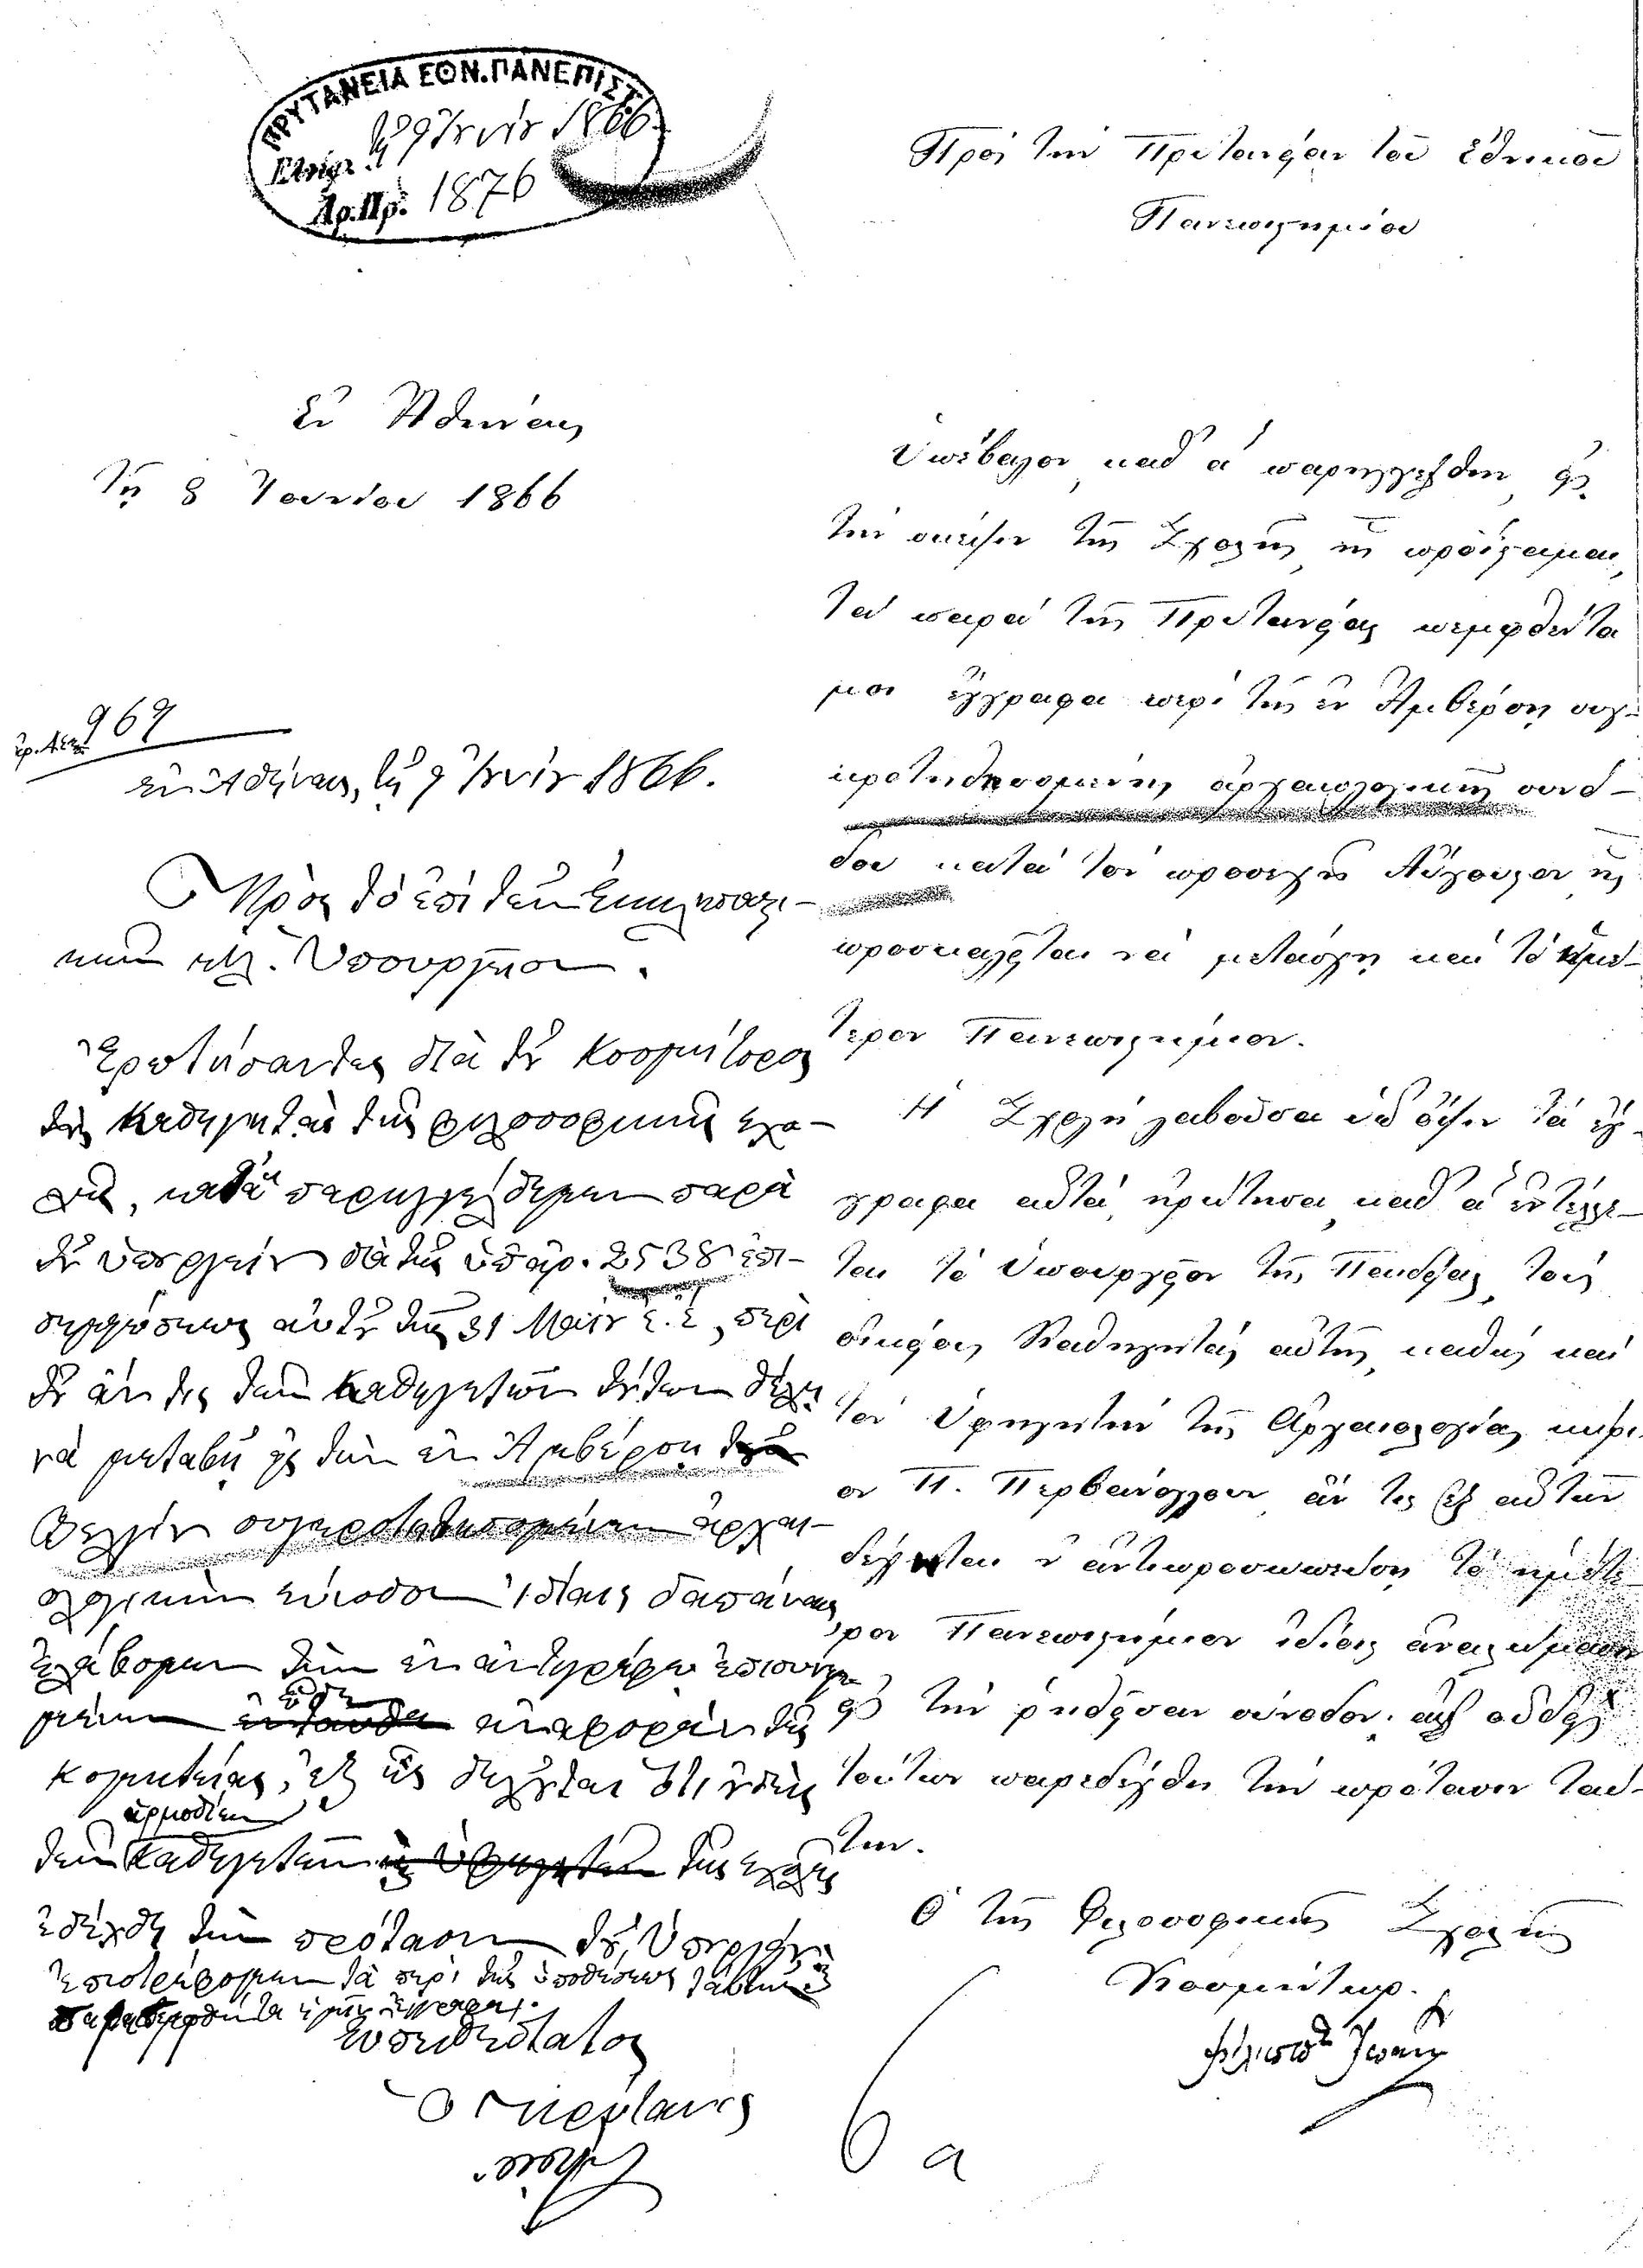 ΠΡΥΤΑΝΕΙΑ ΕΘΝ. ΠΑΝΕΠΙΣΤ.
Εἰσήχ. τῇ 9 Ἰουνίου 1866
Ἀρ. Πρ. 1876
Ἐν Ἀθήναις
τῇ 8 Ἰουνίου 1866
Πρὸς τὴν Πρυτανείαν τοῦ Ἐθνικοῦ
Πανεπιστημίου
Ὑπέβαλον, καθ' ἃ παρηγγέλθην, εἰς
τὴν σκέψιν τῆς Σχολῆς, ἧς προΐσταμαι,
τὰ παρὰ τῆς Πρυτανείας πεμφθέντα
μοι ἔγγραφα περὶ τῆς ἐν Ἀμβέρσῃ συγ-
κροτηθησομένης ἀρχαιολογικῆς συνό-
δου κατὰ τὸν προσεχῆ Αὔγουστον ἧς
προσκαλεῖται νὰ μετάσχῃ καὶ τὸ ἡμέ-
τερον Πανεπιστήμιον.
Ἡ Σχολὴ λαβοῦσα ὑπ' ὄψιν τὰ ἔγ-
γραφα αὐτὰ, ἠρώτησα, καθ' ἃ ἐντέλλε-
ται τὸ Ὑπουργεῖον τῆς Παιδείας, τοὺς
οἰκείους Καθηγητὰς αὐτῆς, καθὼς καὶ
τὸν Ὑφηγητὴν τῆς Ἀρχαιολογίας κύρι-
ον Π. Περβάνογλουν ἄν τις ἐξ αὐτῶν
δέχηται ν' ἀντιπροσωπεύσῃ τὸ ἡμέτε-
ρον Πανεπιστήμιον ἰδίοις ἀναλώμασιν
εἰς τὴν ῥηθεῖσαν σύνοδον· ἀλλ' οὐδεὶς
τούτων παρεδέχθη τὴν πρότασιν ταύ-
την.
Ὁ τῆς Φιλοσοφικῆς Σχολῆς
Κοσμήτωρ.
Φίλιππος Ἰωάννου
ἀρ. 969
ἐν Ἀθήναις, τῇ 9 Ἰουνίου 1866.
Πρὸς τὸ ἐπὶ τῶν Ἐκκλησιαστι-
κῶν κτλ. Ὑπουργεῖον.
Ἐρωτήσαντες διὰ τοῦ Κοσμήτορος
τοὺς Καθηγητὰς τῆς φιλοσοφικῆς σχο-
λῆς, καθ' ἃ παρηγγέλθημεν παρὰ
τοῦ ὑπουργείου διὰ τῆς ὑπ' ἀρ. 2538 ἐπι-
σημειώσεως αὐτοῦ τῆς 31 Μαΐου ἐ. ἔ., περὶ
τοῦ ἄν τις τῶν καθηγητῶν τούτων θέλῃ
νὰ μεταβῇ εἰς τὴν ἐν Ἀμβέρσῃ τοῦ
Βελγίου συγκροτηθησομένην ἀρχαι-
ολογικὴν σύνοδον ἰδίαις δαπάναις
ἐλάβομεν τὴν ἐν ἀντιγράφῳ ἐπισυνημ-
μένην ὧδε ἐνταῦθα ἀναφορὰν τῆς
κοσμητείας, ἐξ ἧς δηλοῦται ὅτι οὐδεὶς
ἁρμοδίων
τῶν καθηγητῶν ἢ ὑφηγητῶν τῆς σχολῆς
ἐδέχθη τὴν πρότασιν τοῦ Ὑπουργείου
Ἐπιστρέφομεν τὰ περὶ τῆς ὑποθέσεως ταύτης
ἡμῖν ἔγγραφα.
Εὐπειθέστατος
Ὁ Πρύτανις
6 a